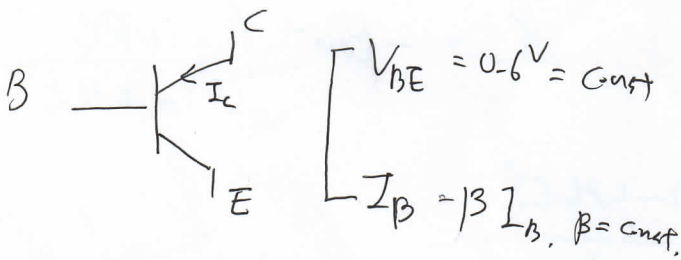 C
B
I_c
E
V_BE = 0.6^V = Const
I_B = β I_B, β = const.